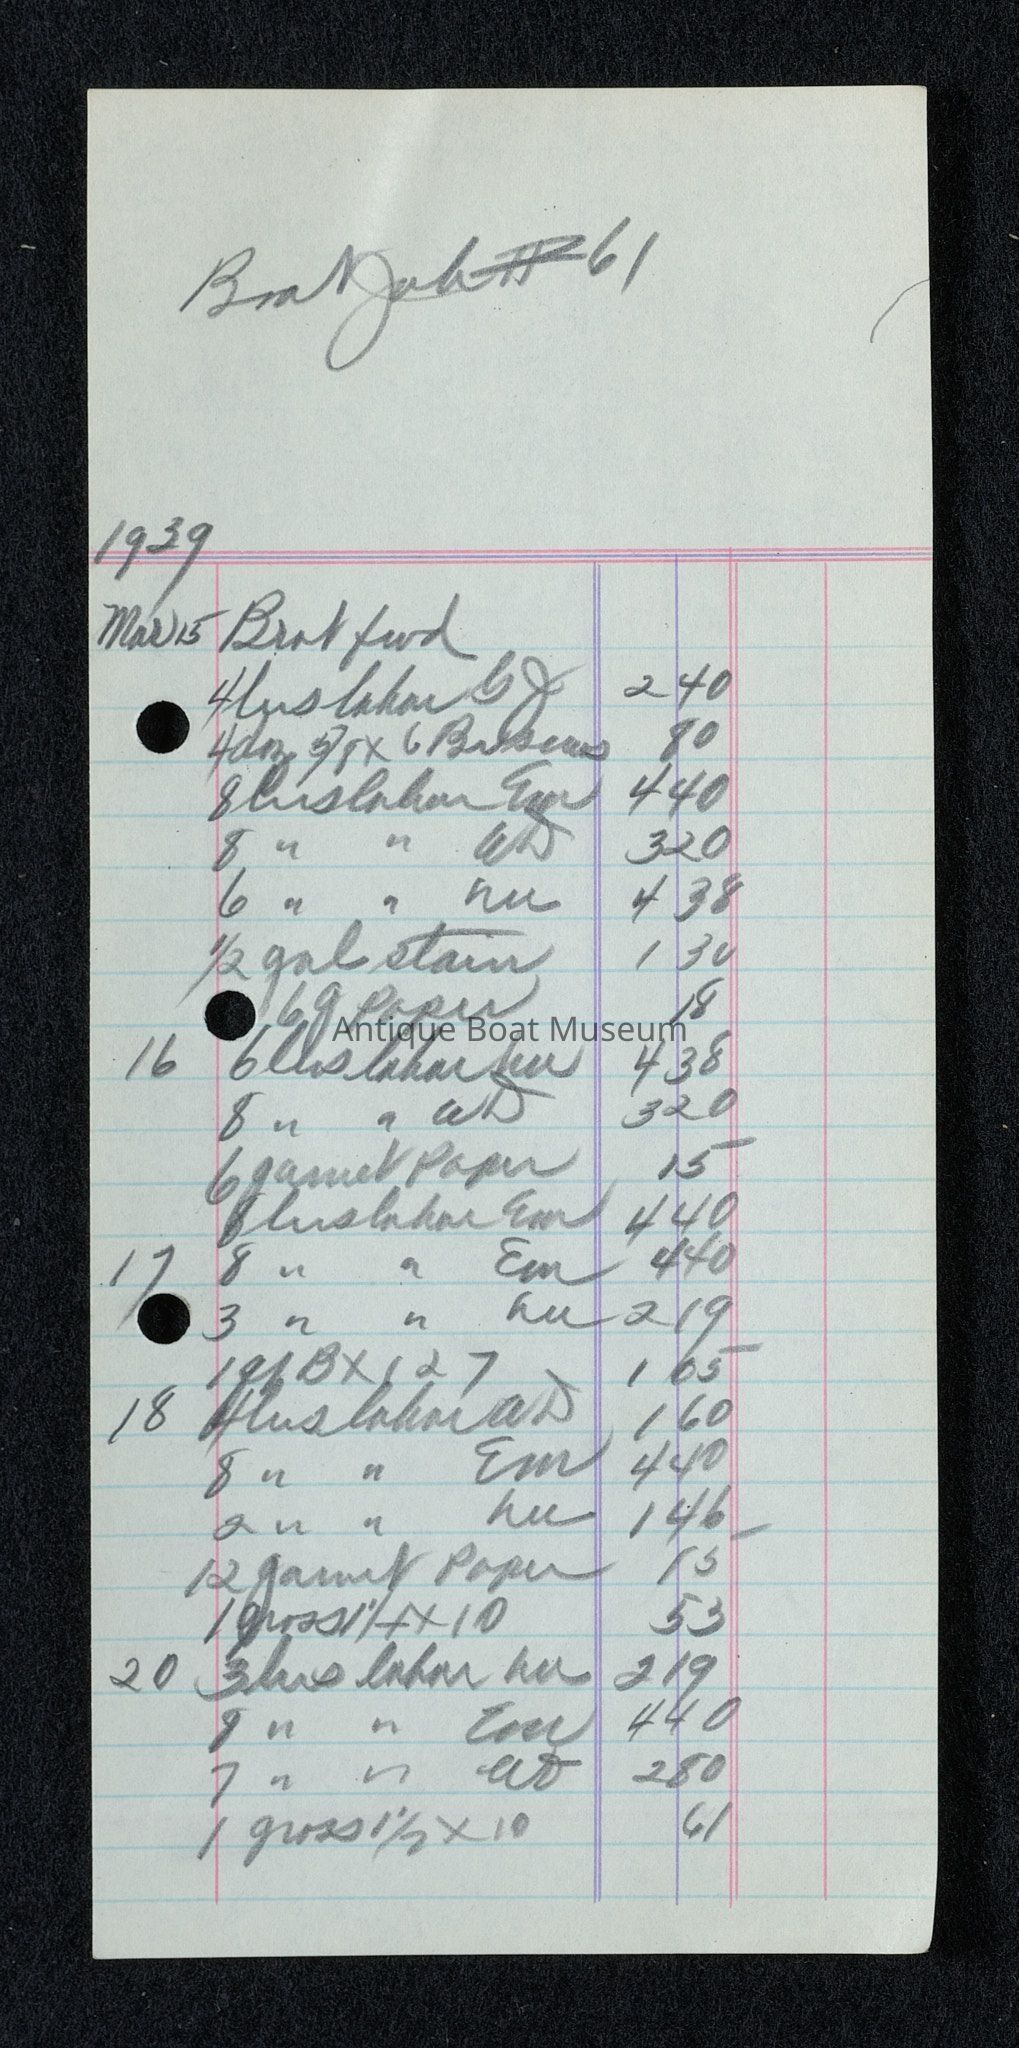 Boat Job # 61
1939
Mar 15 Brot fwd
4 hrs labor GJ 2 40
4 doz 5/8 x 6 Br screws 80
8 hrs labor Em 4 40
8 " " AD 3 20
6 " " 4 38
1/2 gal stain 1 30
6 g paper 18
Antique Boat Museum
16 6 hrs labor 4 38
8 " " AD 3 20
6 garnet paper 15
8 hrs labor Em 4 40
17 8 " " Em 4 40
3 " " 2 19
1 qt BX 127 1 05
18 4 hrs labor AD 1 60
8 " " Em 4 40
2 " " 1 46
12 garnet paper 15
1 gross 1 1/4 x 10 53
20 3 hrs labor 2 19
8 " " Em 4 40
7 " " AD 2 80
1 gross 1 1/2 x 10 61